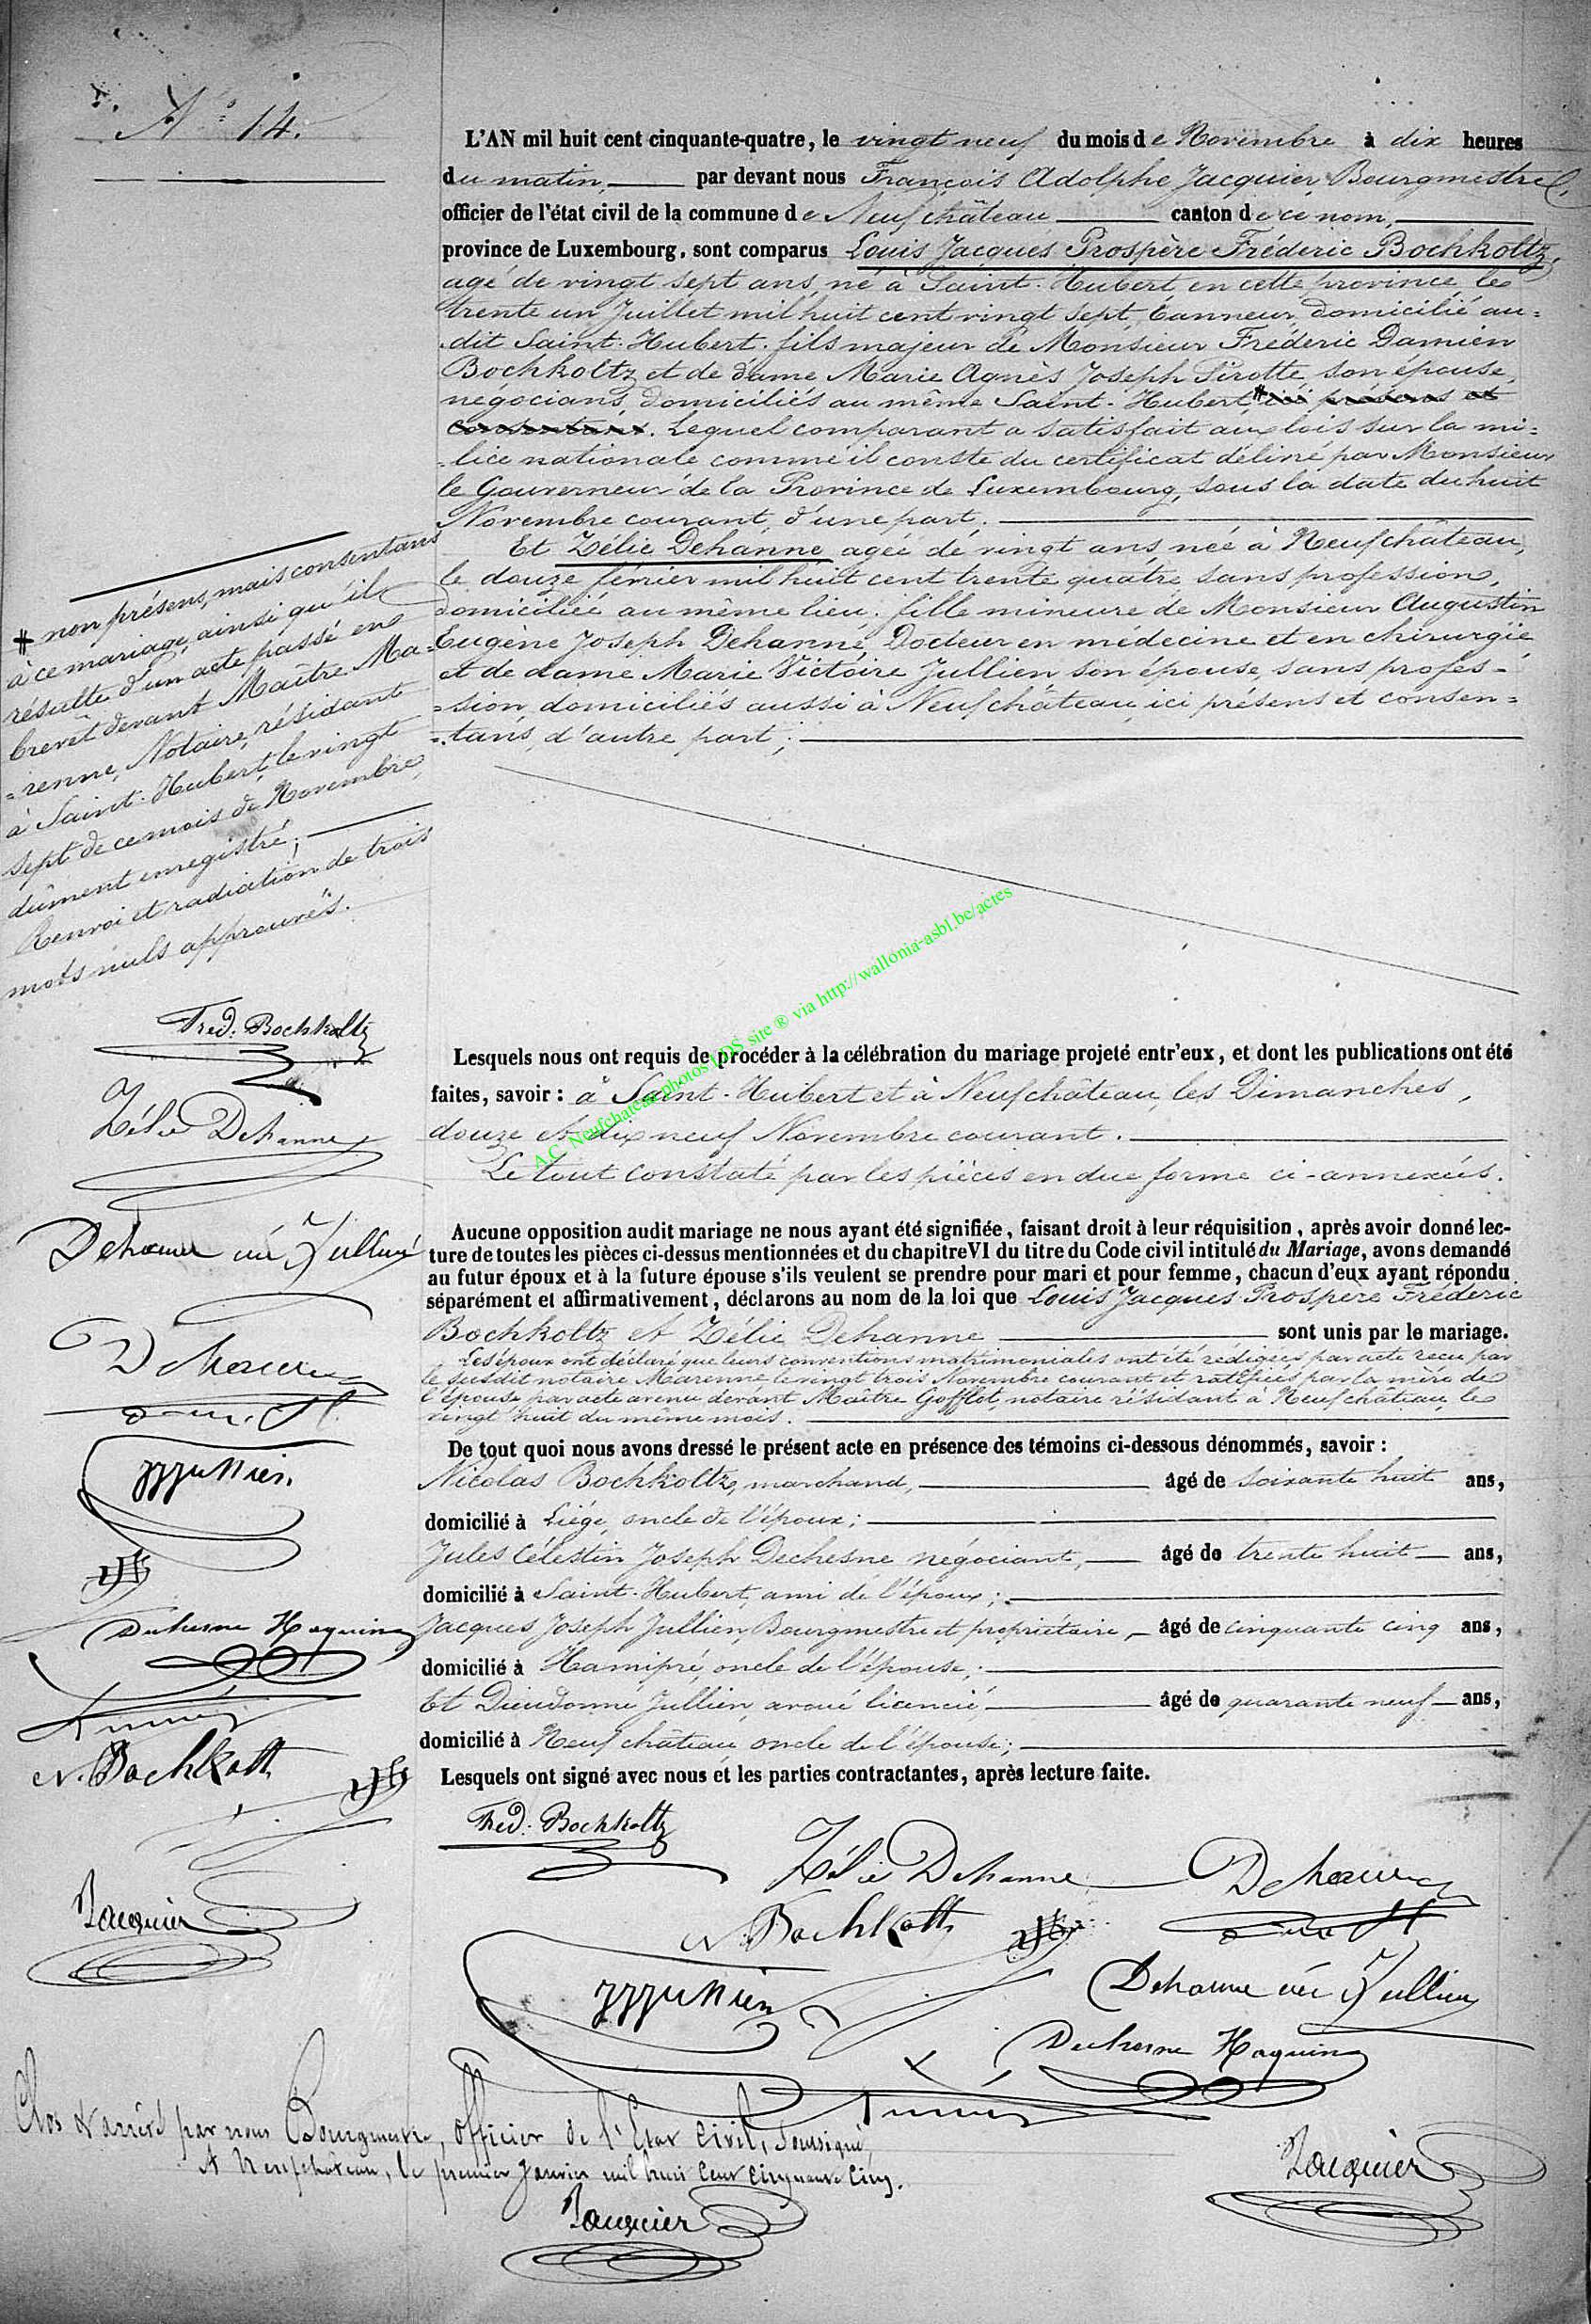 N° 14.
L'AN mil huit cent cinquante-quatre, le vingt neuf du mois de Novembre à dix heures
du matin par devant nous François Adolphe Jacquier Bourgmestre,
officier de l'état civil de la commune de Neufchâteau canton de ce nom,
province de Luxembourg, sont comparus Louis Jacques Prospère Fréderic Bochkoltz,
agé de vingt sept ans, né à Saint-Hubert, en cette province, le
trente un Juillet mil huit cent vingt sept, tanneur, domicilié au=
=dit Saint-Hubert. fils majeur de Monsieur Fréderic Damien
Bochkoltz et de dame Marie Agnès Joseph Pirotte, son épouse,
négocians, domiciliés au même Saint-Hubert, # ici présens et
consentans. Lequel comparant a satisfait aux lois sur la mi=
=lice nationale comme il conste du certificat délivré par Monsieur
le Gouverneur de la Province de Luxembourg, sous la date du huit
Novembre courant, d'une part.
Et Zélie Dehanne agée de vingt ans, née à Neufchâteau,
le douze février mil huit cent trente quatre, sans profession,
domiciliée au même lieu. fille mineure de Monsieur Augustin
Eugène Joseph Dehanne, Docteur en médecine et en chirurgie
et de dame Marie Victoire Jullien son épouse, sans profes-
=sion, domiciliés aussi à Neufchâteau, ici présens et consen=
=tans, d'autre part;
# non présens, mais consentans
à ce mariage, ainsi qu'il
résulte d'un acte passé en
brevêt devant Maître Ma=
=renne, Notaire, résidant
à Saint-Hubert, le vingt
sept de ce mois de Novembre,
dûment enregistré;
Renvoi et radiation de trois
mots nuls approuvés.
Fred: Bochkoltz
Zélie Dehanne
Dehanne née Jullien
Dehanne
JJJullien
Dechesne Haquin
N. Bochkoltz
Jacquier
A.C. Neufchateau photos LDS site ® via http://wallonia-asbl.be/actes
Lesquels nous ont requis de procéder à la célébration du mariage projeté entr'eux, et dont les publications ont été
faites, savoir : à Saint-Hubert et à Neufchâteau, les Dimanches,
douze et dix neuf Novembre courant.
Le tout constaté par les pièces en due forme ci-annexées.
Aucune opposition audit mariage ne nous ayant été signifiée, faisant droit à leur réquisition, après avoir donné lec-
ture de toutes les pièces ci-dessus mentionnées et du chapitre VI du titre du Code civil intitulé du Mariage, avons demandé
au futur époux et à la future épouse s'ils veulent se prendre pour mari et pour femme, chacun d'eux ayant répondu
séparément et affirmativement, déclarons au nom de la loi que Louis Jacques Prospère Fréderic
Bochkoltz et Zélie Dehanne sont unis par le mariage.
Les époux ont déclaré que leurs conventions matrimoniales ont été rédigées par acte reçu par
le susdit notaire Marenne le vingt trois Novembre courant et ratifiées par la mère de
l'épouse par acte avenu devant Maître Gofflot, notaire résidant à Neufchâteau, le
vingt huit du même mois.
De tout quoi nous avons dressé le présent acte en présence des témoins ci-dessous dénommés, savoir :
Nicolas Bochkoltz, marchand, âgé de soixante huit ans,
domicilié à Liége, oncle de l'époux;
Jules Célestin Joseph Dechesne négociant, âgé de trente huit ans,
domicilié à Saint-Hubert, ami de l'époux;
Jacques Joseph Jullien, Bourgmestre et propriétaire, âgé de cinquante cinq ans,
domicilié à Hamipré, oncle de l'épouse;
Et Dieudonné Jullien, avoué licencié, âgé de quarante neuf ans,
domicilié à Neufchâteau oncle de l'épouse;
Lesquels ont signé avec nous et les parties contractantes, après lecture faite.
Fred: Bochkoltz
Zélie Dehanne
Dehanne
N. Bochkoltz
JJJullien
Dehanne née Jullien
Dechesne Haquin
Jacquier
Clos & arrêté par nous Bourgmestre, officier de l'Etat Civil, soussigné,
A Neufchâteau, le premier Janvier mil huit cent cinquante cinq.
Jacquier